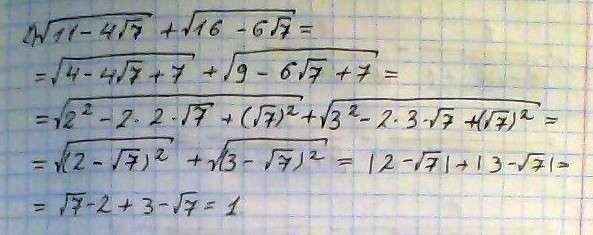 2) √(11 - 4√7) + √(16 - 6√7) =
= √(4 - 4√7 + 7) + √(9 - 6√7 + 7) =
= √(2² - 2·2·√7 + (√7)²) + √(3² - 2·3·√7 + (√7)²) =
= √((2 - √7)²) + √((3 - √7)²) = |2 - √7| + |3 - √7| =
= √7 - 2 + 3 - √7 = 1